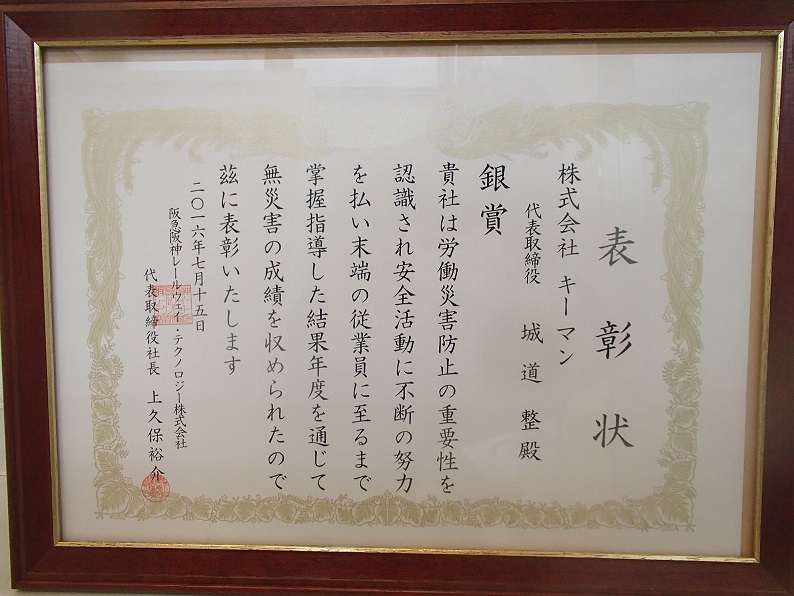 表彰状
株式会社 キーマン
代表取締役 城道整殿
銀賞
貴社は労働災害防止の重要性を
認識され安全活動に不断の努力
を払い末端の従業員に至るまで
掌握指導した結果年度を通じて
無災害の成績を収められたので
茲に表彰いたします
二〇一六年七月十五日
阪急阪神レールウェイ・テクノロジー株式会社
代表取締役社長 上久保裕介